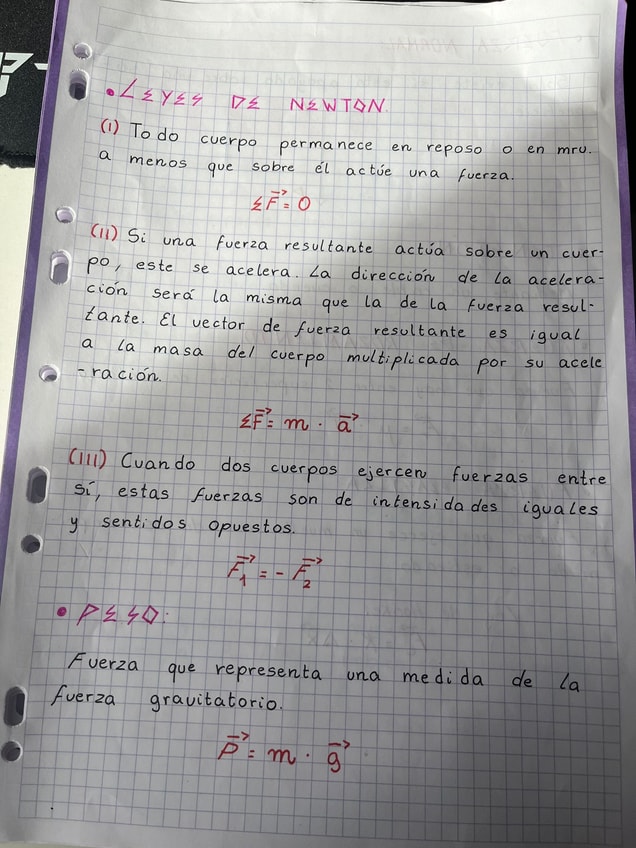 • LEYES DE NEWTON.
(I) Todo cuerpo permanece en reposo o en mru.
a menos que sobre él actúe una fuerza.
ΣF⃗ = 0
(II) Si una fuerza resultante actúa sobre un cuer-
po, este se acelera. La dirección de la acelera-
ción será la misma que la de la fuerza resul-
tante. El vector de fuerza resultante es igual
a la masa del cuerpo multiplicada por su acele
-ración.
ΣF⃗ = m · a⃗
(III) Cuando dos cuerpos ejercen fuerzas entre
sí, estas fuerzas son de intensidades iguales
y sentidos opuestos.
F⃗₁ = - F⃗₂
• PESO.
Fuerza que representa una medida de la
fuerza gravitatorio.
P⃗ = m · g⃗